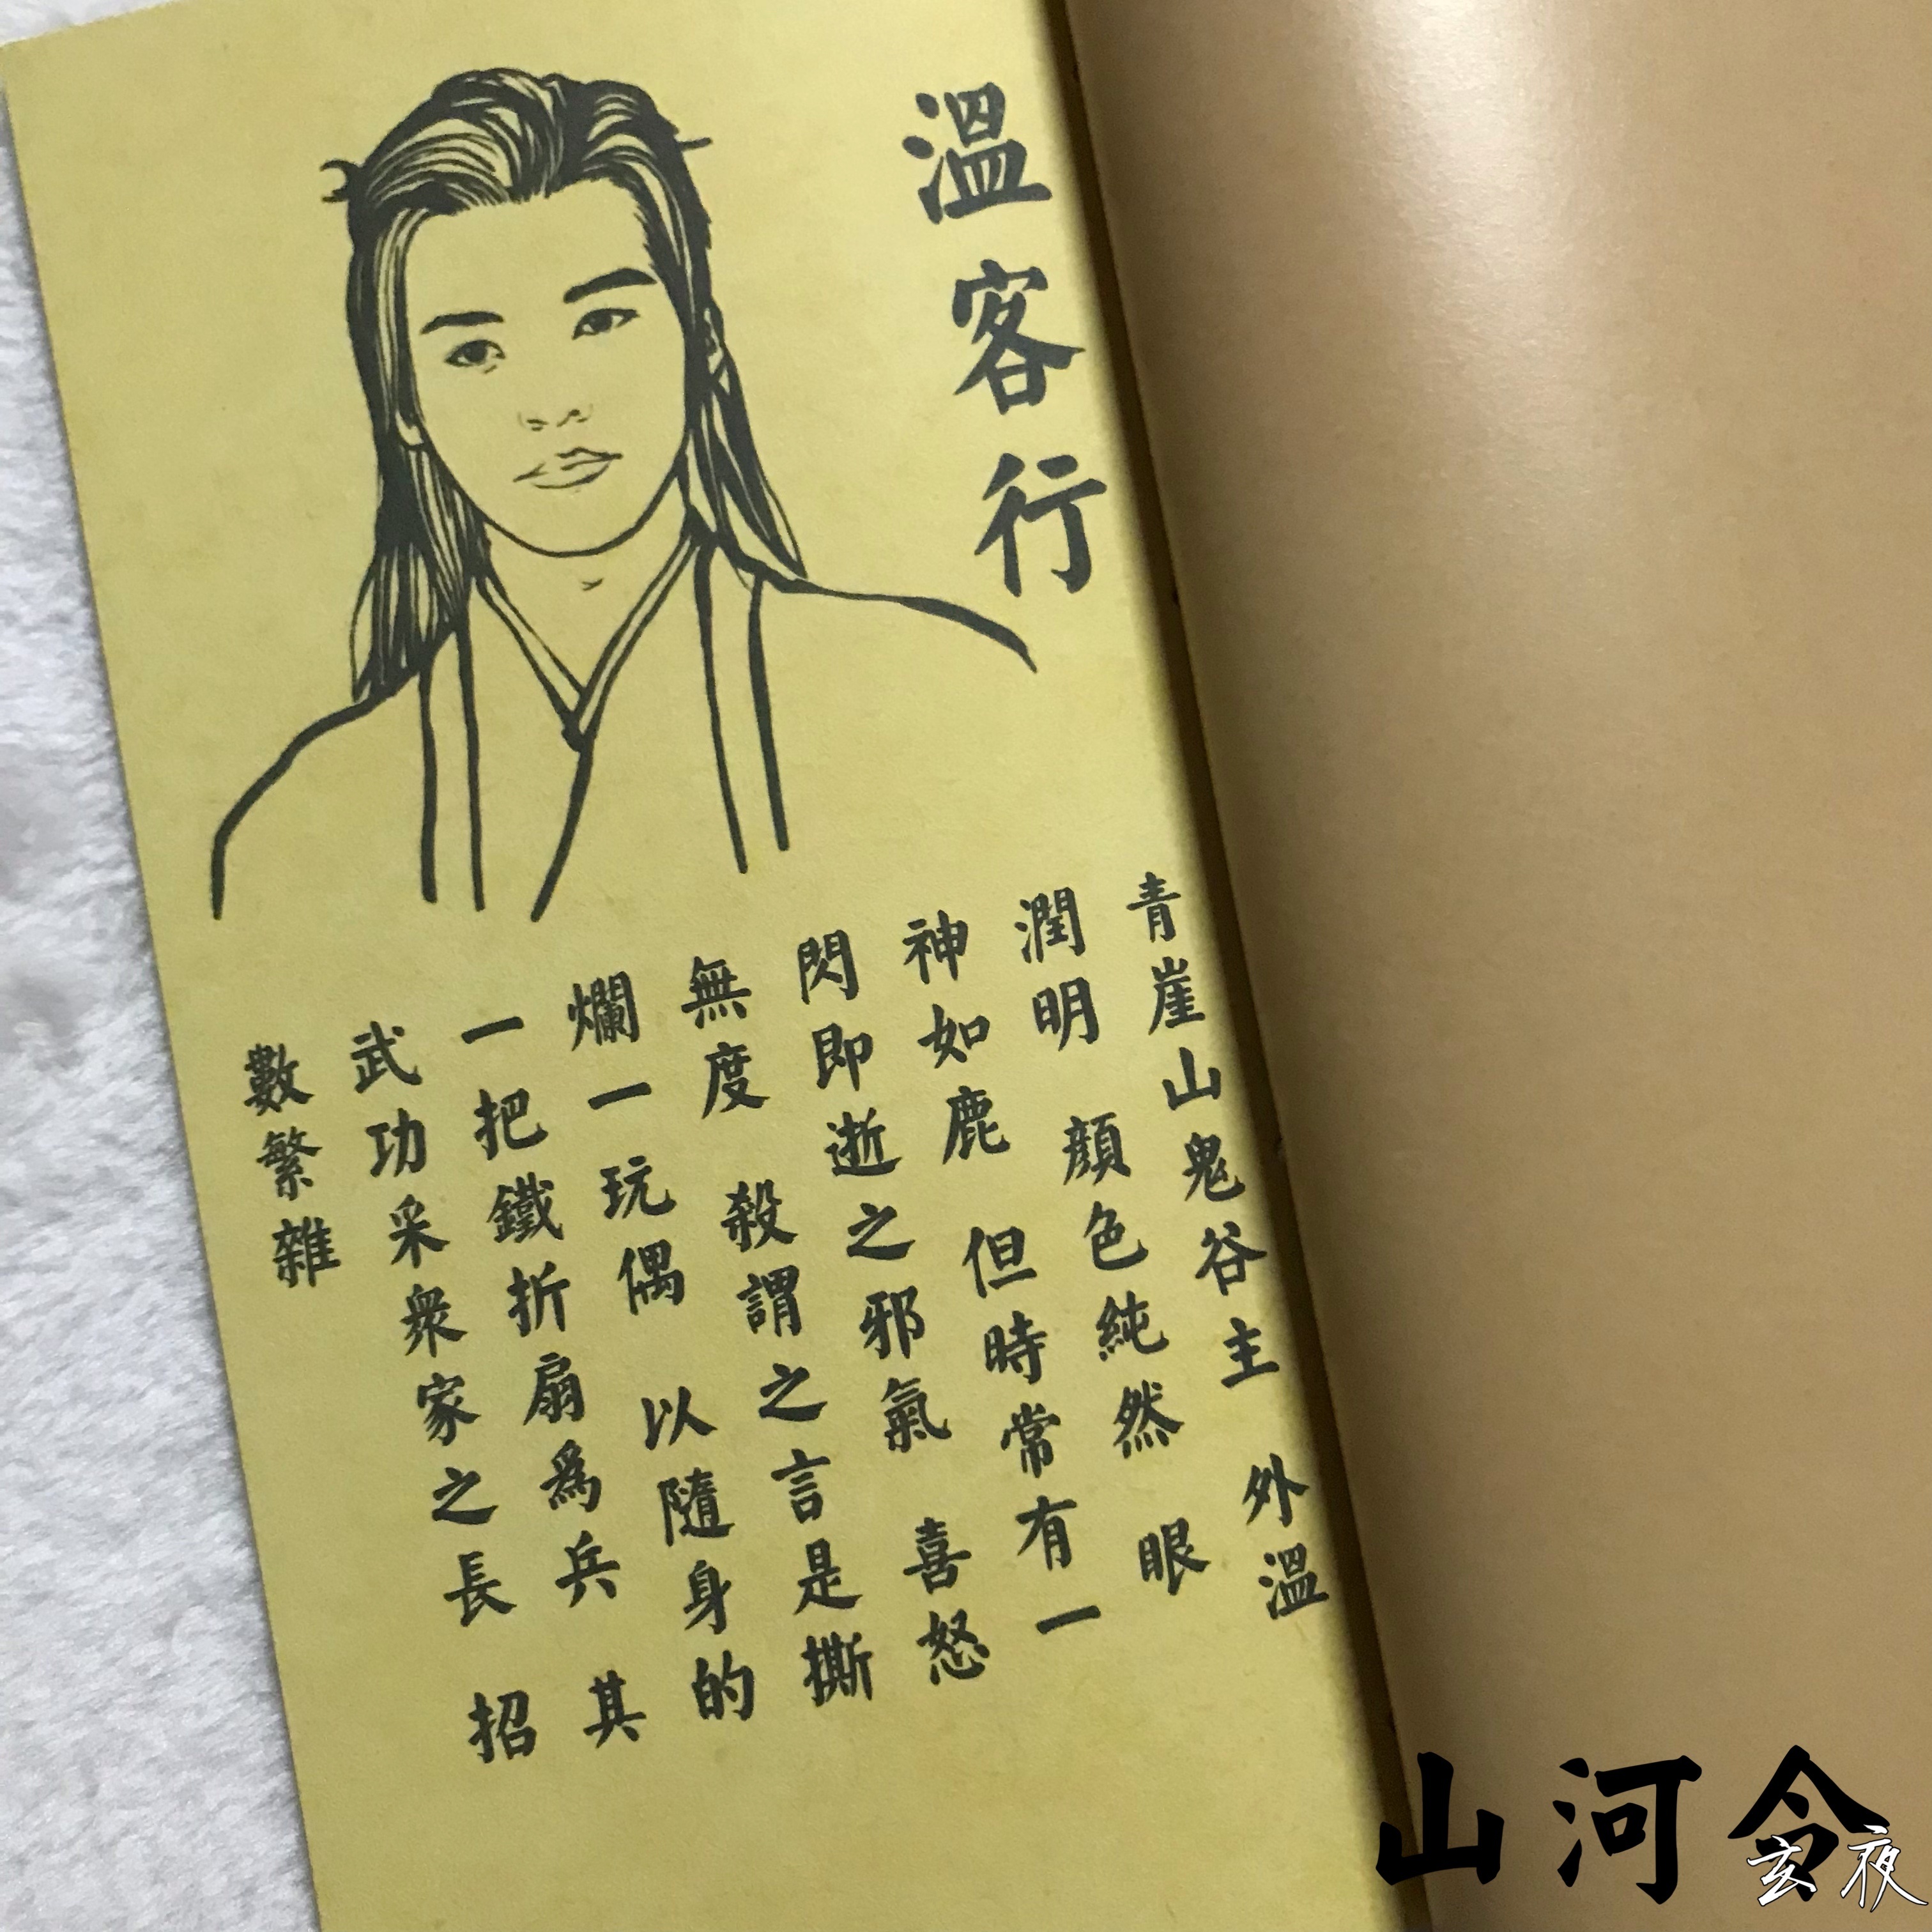 溫客行
青崖山鬼谷主 外溫
潤明 顔色純然 眼
神如鹿 但時常有一
閃即逝之邪氣 喜怒
無度 殺謂之言是撕
爛一玩偶 以隨身的
一把鐵折扇爲兵 其
武功采衆家之長 招
數繁雜
山河令
玄夜